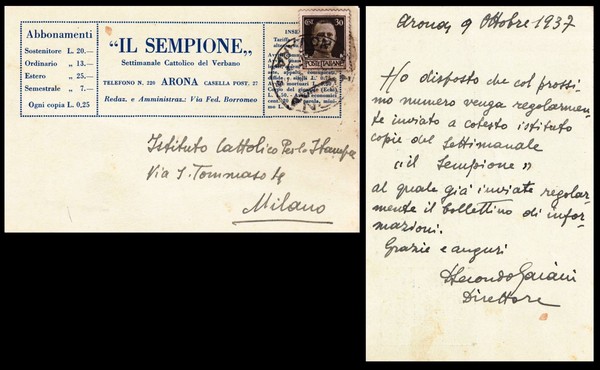 Abbonamenti
Sostenitore L. 20.—
Ordinario „ 13.—
Estero „ 25.—
Semestrale „ 7.—
Ogni copia L. 0,25
“IL SEMPIONE„
Settimanale Cattolico del Verbano
TELEFONO N. 220 ARONA CASELLA POST. 27
Redaz. e Amministraz.: Via Fed. Borromeo
CENT. 30
POSTE ITALIANE
Istituto Cattolico per la Stampa
Via S. Tommaso 4
Milano
Arona, 9 Ottobre 1937
Ho disposto che col prossi
mo numero venga regolarmen-
te inviato a cotesto istituto
copie del Settimanale
“il Sempione”
al quale già inviate regolar-
mente il bollettino di infor-
mazioni.
Grazie e auguri
Direttore